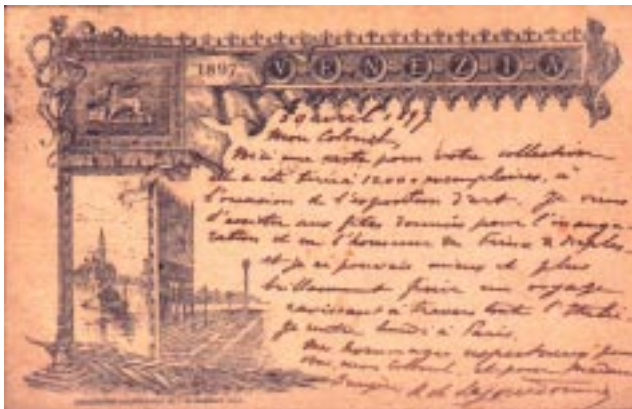 1897 VENEZIA
30 avril 1897
Mon Colonel,
Voici une carte pour votre collection
Elle a été tirée à 1200 exemplaires, à
l'occasion de l'exposition d'art. Je viens
d'assister aux fêtes données pour l'inaugu-
ration et en l'honneur du Prince de Naples
et je ne pouvais mieux et plus
brillamment finir un voyage
ravissant à travers toute l'Italie.
Je rentre lundi à Paris.
hommages respectueux pour
mon Colonel et pour Madame